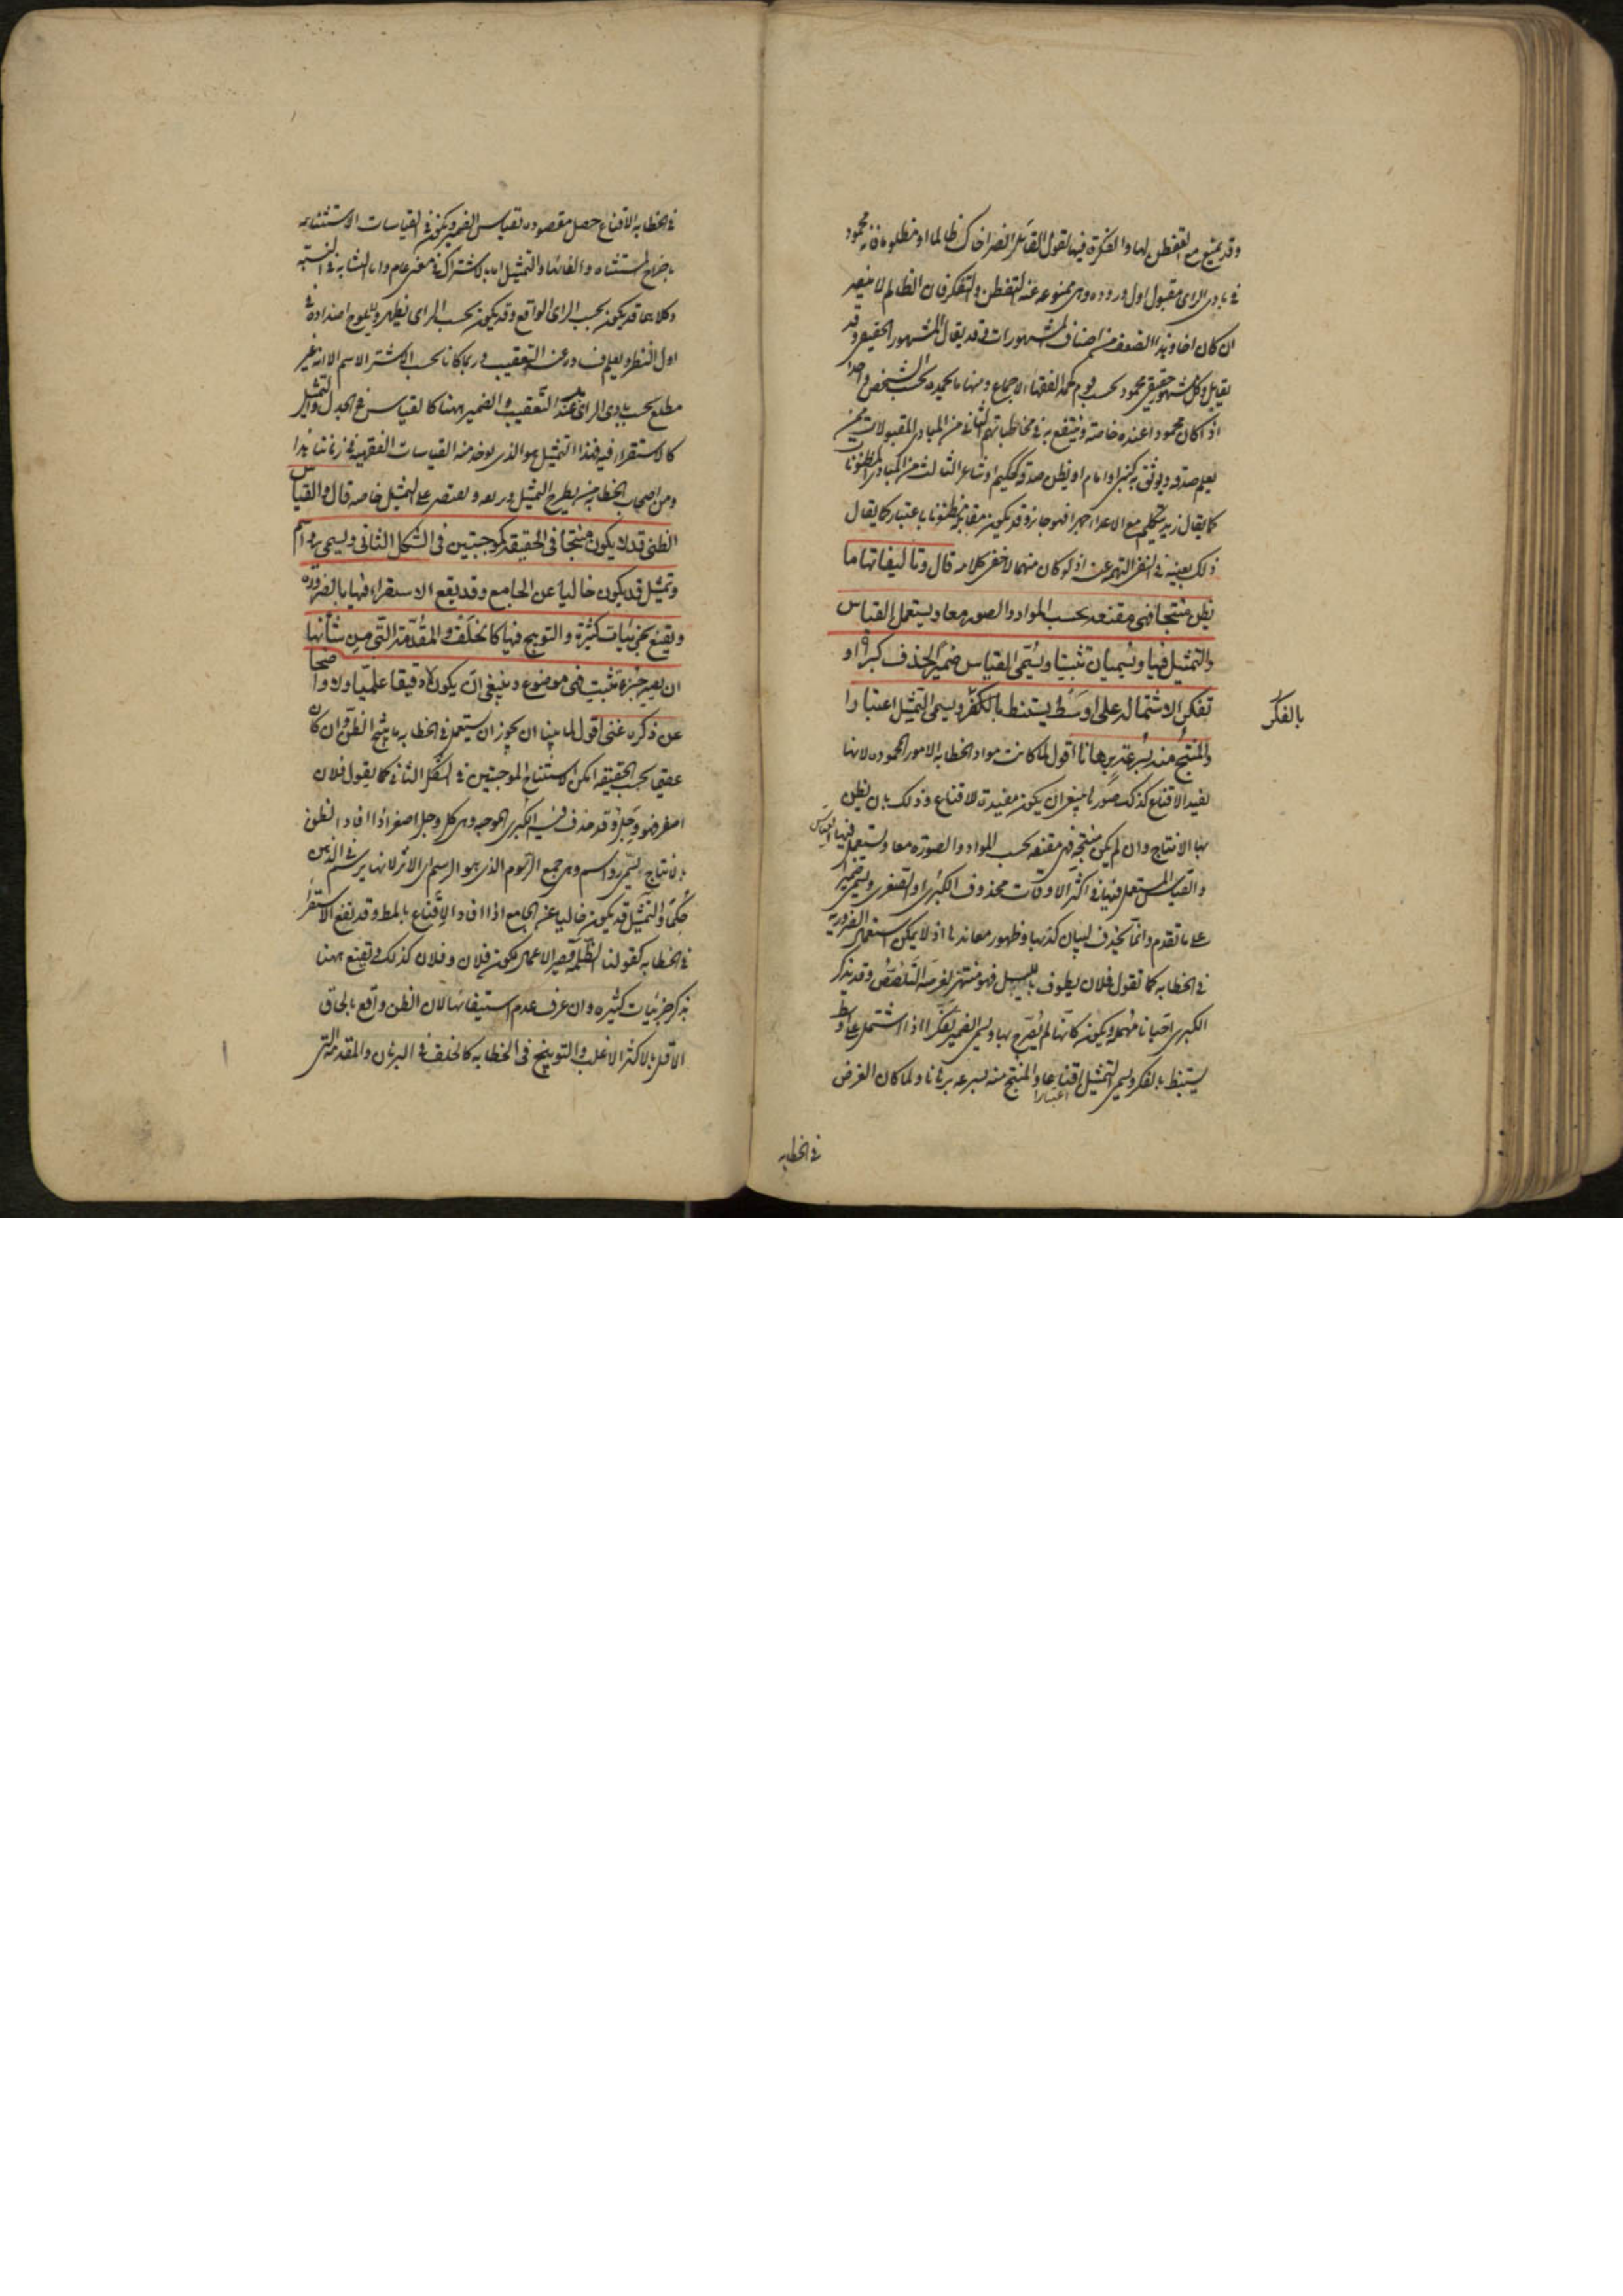 وقد يمتنع مع التفطن لها والفكرة فيها كقول القائل انصر اخاك ظالما او مظلوما فانه محمود
في بادي الراى مقبول اول وروده وهى ممنوعة عند التفطن والتفكر فان الظالم لا ينصر
ان كان اخا وهذا اضعف من اصناف المشهورات وقد يقال المشهور الحقيقي وقد
يقابل وكل مشهور حقيقي محمود بحسب قوم كحمد الفقهاء الاجماع ومنها ما يحمده بحسب الشخص واحد
اذ كان محمودا عنده خاصة وينتفع به في مخاطباتهم الثاني من المبادى المقبولات ممن
يعلم صدقه ويوثق به كنبى او امام او يظن صدقه كحكيم او شاعر الثالث من المبادى المظنونات
كما يقال زيد يتكلم مع الاعداء جهرا فهو وقد يكون مقابله مظنونا باعتبار كما يقال
ذلك بعينه في نفى التهمة عنه اذ لو كان متهما لاخفى كلامه قال وتاليفاتها ما
يظن منتجا فهى مقنعة بحسب المواد والصور معا ويستعمل القياس
والتمثيل فيها ويسميان تثبيتا ويسمى القياس ضميرا لحذف كبراه او
تفكيرا لاشتماله على اوسط يستنبط بالفكر ويسمى التمثيل اعتبارا
بالفكر
والمنتج منه بسرعة برهانا اقول لما كانت مواد الخطابه الامور المحموده لانها
تفيد الاقناع كذلك صورها ينبغي ان يكون مفيدة للاقناع وذلك بان يظن
بها الانتاج وان لم يكن منتجة فهى مقنعه بحسب المواد والصوره معا ويستعمل فيها القياس
والقياس المستعمل فيها في اكثر الاوقات محذوف الكبرى او الصغرى ويسمى ضميرا
على ما تقدم وانما يحذف لبيان كذبها وظهور معاندها اذ لا يمكن استعمال الضرورية
في الخطابه كما تقول فلان يطوف بالليل فهو منتهز لفرصة التلصص وقد يذكر
الكبرى احيانا مهملة ويكون كانها لم يصرح بها ويسمى الضمير تفكيرا اذا اشتمل على اوسط
يستنبط بالفكر ويسمى التمثيل اقناعا والمنتج منه بسرعه برهانا ولما كان الغرض
اعتبارا
في الخطابه
في الخطابه الاقناع حصل مقصوده بقياس الضمير ويكون في القياسات الاستثنائيه
باخراج المستثناه والغائها والتمثيل اما بالاشتراك في معنى عام واما بالمشابه في النسبه
وكلاهما قد يكون بحسب الراى الواقع وقد يكون بحسب الراى يظهر ويلوح
اول النظر ويعلم فساده عند التعقيب وربما كانا بحسب الاشتراك الاسم الا انه غير
مطلع بحسب بادى الراى عند التعقيب والضمير ههنا كالقياس في الجدل والتمثيل
كالاستقراء فيه فهذا التمثيل هو الذي يوخذ منه القياسات الفقهيه في زماننا هذا
ومن اصحاب الخطابه من يطرح التمثيل ومنهم يقتصر على التمثيل خاصه قال والقياس
الظنى قد لا يكون منتجا في الحقيقة كموجبتين في الشكل الثاني ويسمى رواسم
وتمثيل قد يكون خاليا عن الجامع وقد يقع الاستقراء فيها بالضروره
ويقنع بجزئيات كثيرة والتوبيخ فيها كالخلف والمقدمة التي من شانها
ان يصير جزء تثبيت فهى موضوع وينبغي ان يكون لا دقيقا علميا ولا واضحا
عن ذكره غنى اقول لما بينا ان يجوز ان يستعمل في الخطابه ما ينتج الظن وان كان
عقيما بحسب الحقيقه امكن الاستنتاج الموجبتين في الشكل الثاني كما يقول فلان
اصفر فهو وجل وقد حذف فيه الكبرى الموجبه وهى كل وجل اصفر اذا افاد الظن
بالانتاج يسمى رواسم وهى جمع الرسوم الذي هو الرسم اى الاثر لانها يرتسم في الذهن
حكما والتمثيل قد يكون خاليا عن الجامع اذا افاد الاقناع بالخلط وقد يقع الاستقراء
في الخطابه كقولنا الظلمة قصير الاعمار لكون فلان وفلان كذلك ويقنع ههنا
بذكر جزئيات كثيره وان عرف عدم استيفائها لان الظن واقع بالحاق
الاقل بالاكثر الاغلب والتوبيخ في الخطابه كالخلف في البرهان والمقدمة التي